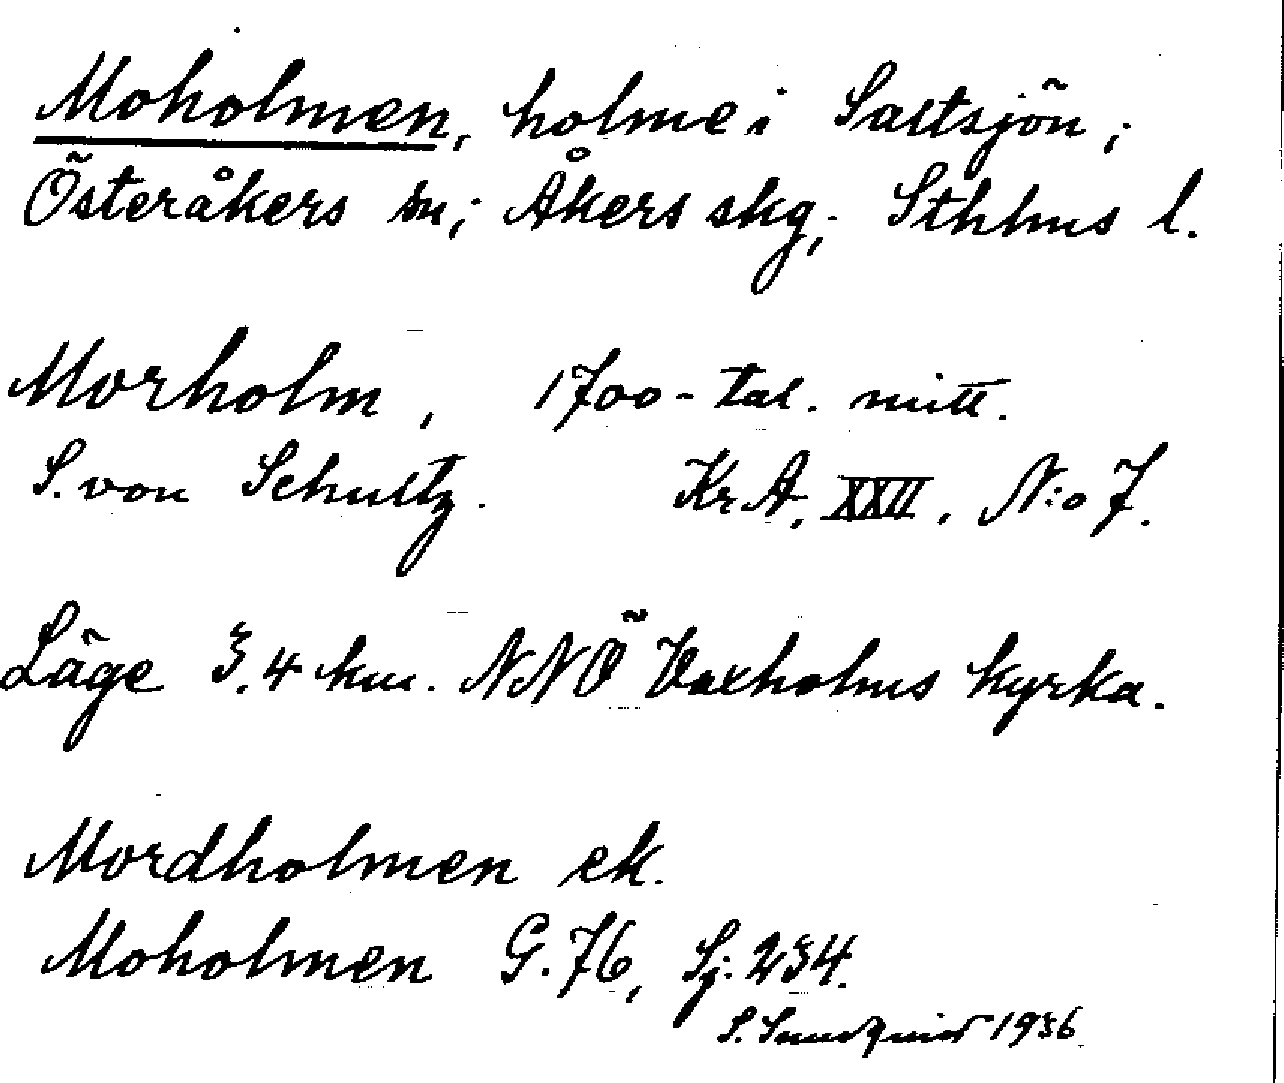 Moholmen, holme i Saltsjön;
Österåkers sn; Åkers skg; Sthlms l.
Morholm, 1700-tal. mitt.
S. von Schultz. KrA, XXII, N:o 7.
Läge 3,4 km. NNÖ Vaxholms kyrka.
Mordholmen ek.
Moholmen G. 76, Sj: 234.
S. Sundquist 1936